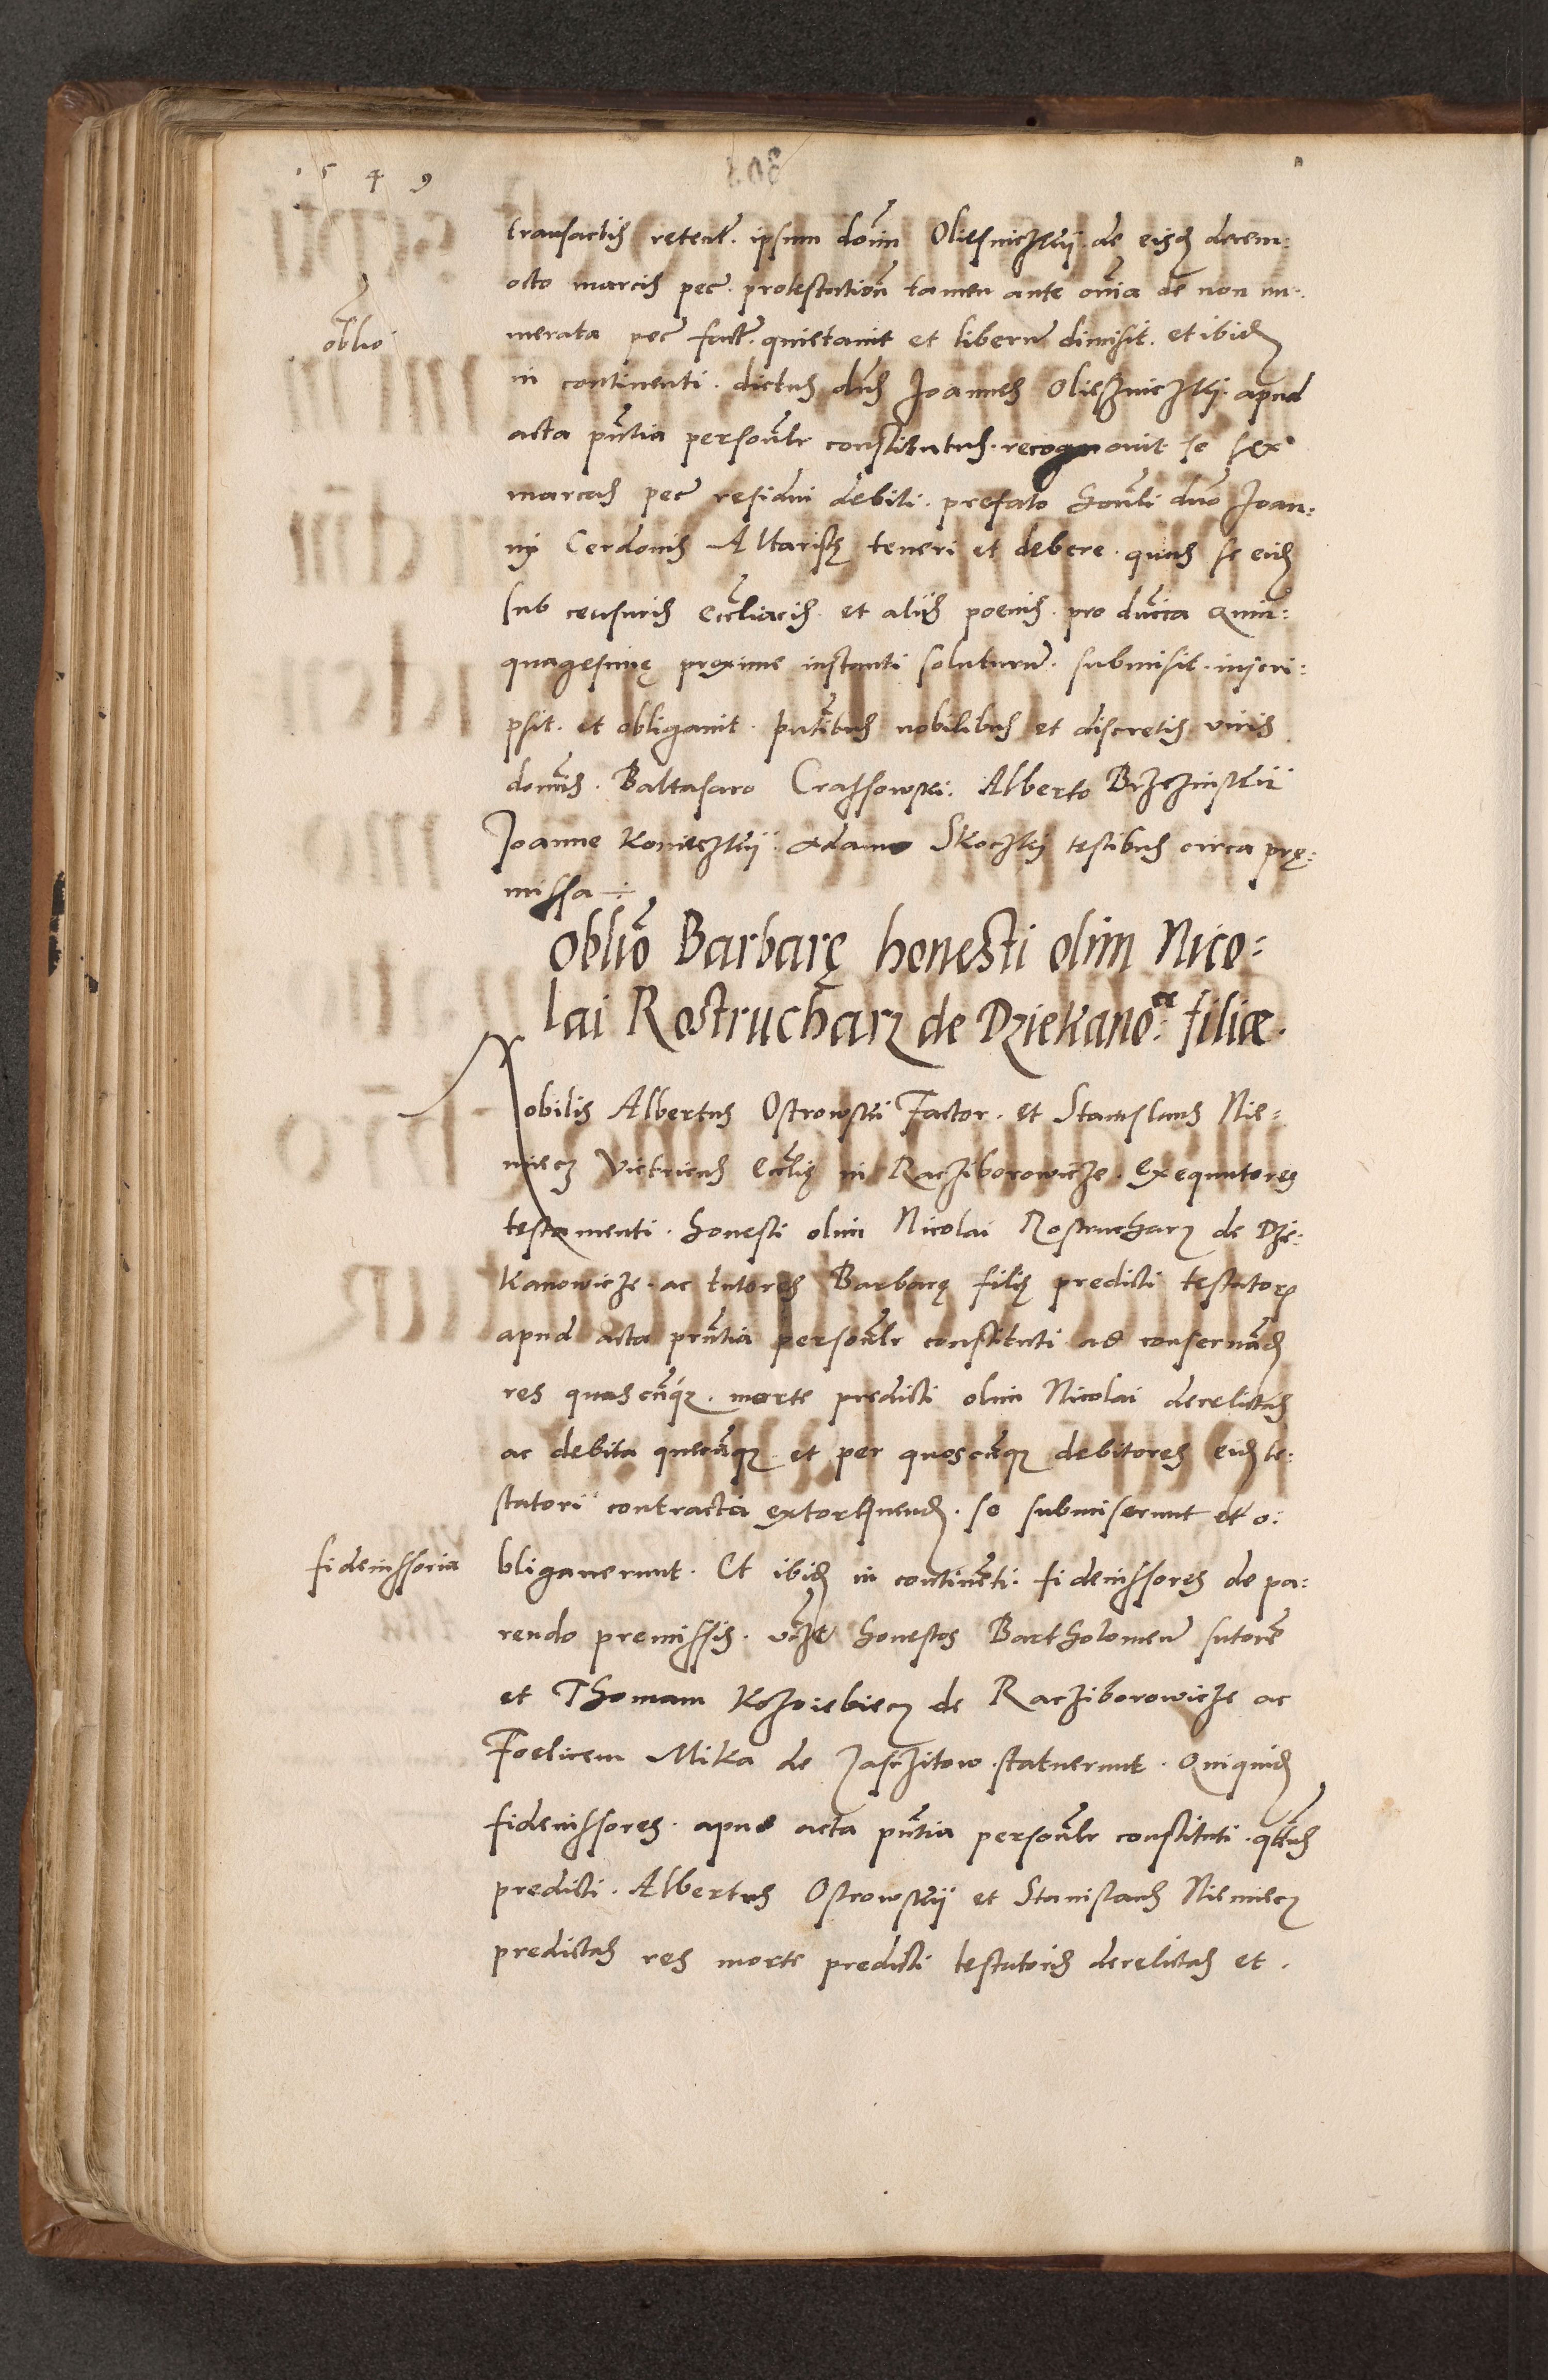 1549
transactis retent. ipsum domin Oliesniczkii de eisd decem:
octo marcis pec. protestation tamen ante omnia de non nu:
oblio
merata pec fact. quietavit et liberum dimisit. et ibid
in continenti. dictus dns Joannes Olieszniczkij. apud
acta pntia personalr constitutus. recognovit se sex
marcas pec residui debiti. prefato honli dno Joan:
nj Cerdonis Altaristę teneri et debere. quas se eid
sub censuris eccliacis. et aliis poenis. pro dnica Quin:
quagesimę proxime instanti soluturum. submisit. inscri:
psit. et obligavit. pntibus nobilibus et discretis viris
domnis. Baltasaro Crassowski. Alberto Brzezinskii
Joanne Konieczkii. Adamo Skoczkij testibus circa prę:
missa
Oblio Barbarę honesti olim Nico=
lai Rostrucharz de Dziekano:ce filiae.
Nobilis Albertus Ostrowski Factor. et Stanislaus Nie=
miecz Vitricus Ecclię in Racziborowicze. Exequutores
testamenti. honesti olim Nicolai Rostrucharz de Dzie:
kanowicze. ac tutores Barbarę filię predicti testator
apud acta prntia personalr constituti ad conservand
res quascunque. morte predicti olim Nicolai derelictas
ac debita quecunque et per quoscunque debitores eid te:
statori contracta extorquend. se submiserunt et o:
fideiussoria
bligaverunt. Et ibid in continenti. fideiussores de pa:
rendo premissis. vczt honestos Bartholomeum sutorem
et Thomam Kozoiebiecz de Racziborowicze ac
Foelicem Mika de Jasczitow. statuerunt. Quiquid
fideiussores. apud acta pntia personalr constituti. qtnus
predicti. Albertus Ostrowskii et Stanislaus Niemiecz
predictas res morte predicti testatoris derelictas et.